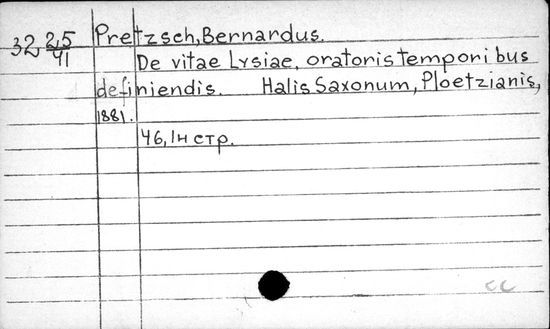 32 25/41 Pretzsch, Bernardus.
De vitae Lysiae, oratoris temporibus
definiendis. Halis Saxonum, Ploetzianis,
1881.
46, 1н стр.
cc